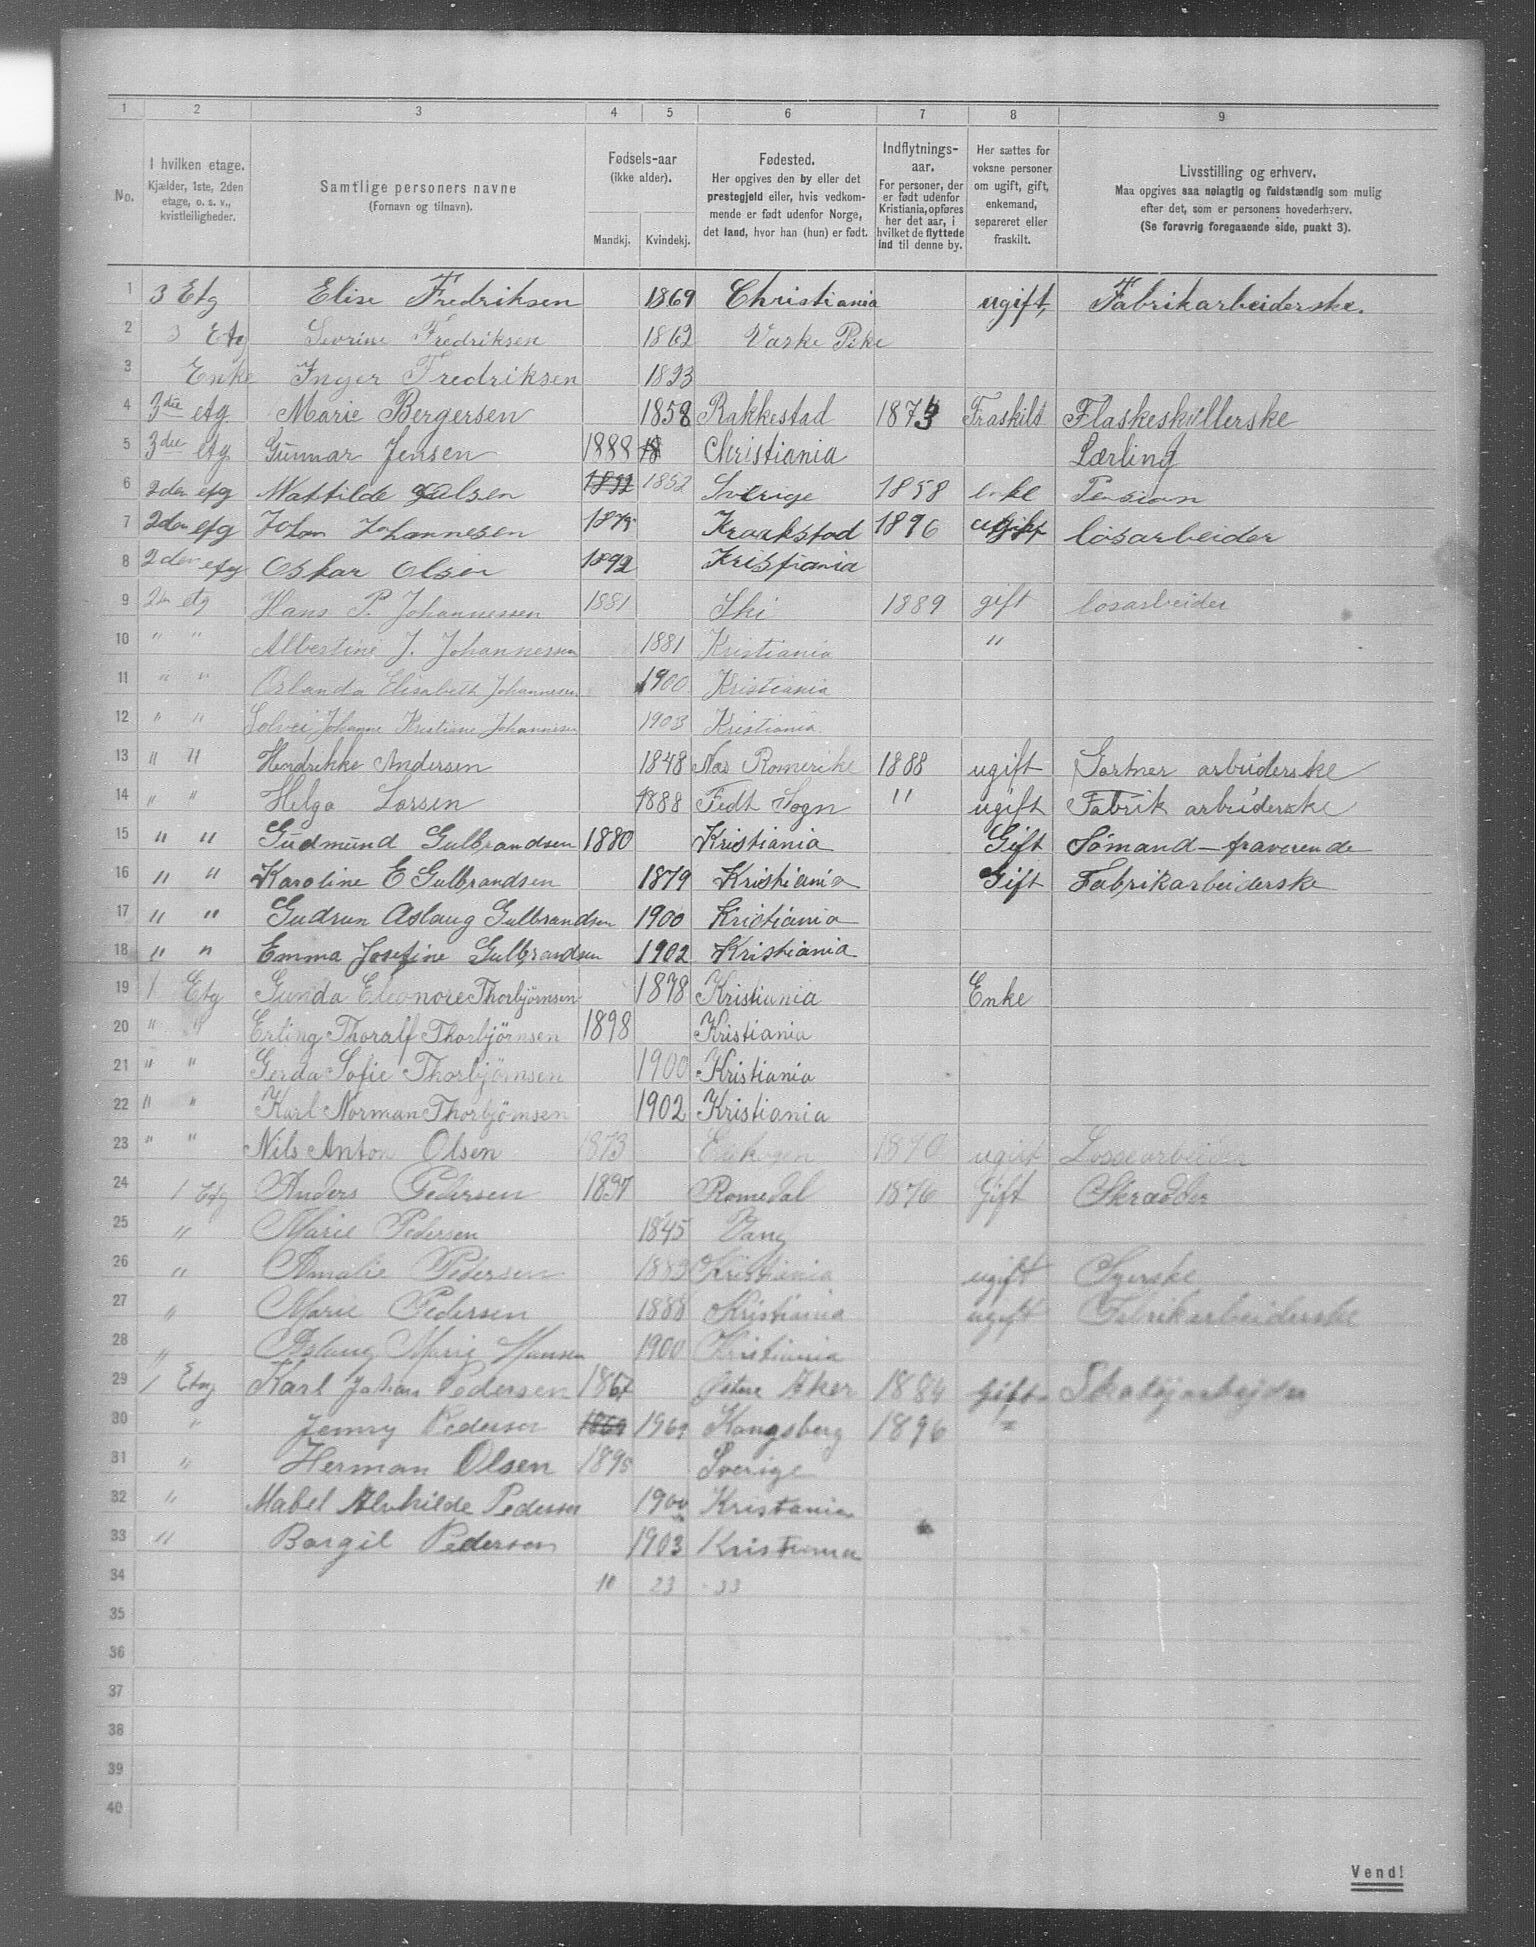 1 2 3 4 5 6 7 8 9
No.
I hvilken etage.
Kjælder, 1ste, 2den
etage, o. s. v.,
kvistleiligheder.
Samtlige personers navne
(Fornavn og tilnavn).
Fødsels-aar
(ikke alder).
Mandkj. Kvindekj.
Fødested.
Her opgives den by eller det
prestegjeld eller, hvis vedkom-
mende er født udenfor Norge,
det land, hvor han (hun) er født.
Indflytnings-
aar.
For personer, der
er født udenfor
Kristiania, opføres
her det aar, i
hvilket de flyttede
ind til denne by.
Her sættes for
voksne personer
om ugift, gift,
enkemand,
separeret eller
fraskilt.
Livsstilling og erhverv.
Maa opgives saa nøiagtig og fuldstændig som mulig
efter det, som er personens hovederhverv.
(Se forøvrig foregaaende side, punkt 3).
1 3 Etg Elise Fredriksen 1869 Christiania ugift, Fabrikarbeiderske.
2 3 Etg Sevrine Fredriksen 1862 Vaske Pike
3 Enke Inger Fredriksen 1823
4 3die etg Marie Bergersen 1858 Rakkestad Fraskilt Flaskeskyllerske
5 3die etg Gunnar Jensen 1888 18 Christiania Lærling
6 2den etg Mattilde Olsen 1852 1852 Sverige 1858 enke Pension
7 2den etg Johan Johannesen 1875 Kraakstad 1896 ugift løsarbeider
8 2den etg Oskar Olsen 1892 Kristiania
9 2den etg Hans P. Johannessen 1881 Ski 1889 gift løsarbeider
10 " " Albertine J. Johannessen 1881 Kristiania "
11 " " Orlanda Elisabeth Johannesen 1900 Kristiania
12 " " Solvei Johanne Kristiane Johannesen 1903 Kristiania
13 " " Hendrikke Andersen 1848 Nas Romerike 1888 ugift Gartner arbeiderske
14 " " Helga Larsen 1888 Fedt Sogn " ugift Fabrik arbeiderske
15 " " Gudmund Gulbrandsen 1880 Kristiania Gift Sømand – fraverende
16 " " Karoline E Gulbrandsen 1879 Kristiania Gift Fabrikarbeiderske
17 " " Gudrun Aslaug Gulbrandsen 1900 Kristiania
18 " " Emma Josefine Gulbrandsen 1902 Kristiania
19 1 Etg Gunda Eleonore Thorbjørnsen 1878 Kristiania Enke
20 " " Erling Thoralf Thorbjørnsen 1898 Kristiania
21 " " Gerda Sofie Thorbjørnsen 1900 Kristiania
22 " " Karl Norman Thorbjørnsen 1902 Kristiania
23 " " Nils Anton Olsen 1873 1890 ugift Løssearbeider
24 1 Etg Anders Pedersen 1837 Romedal 1876 Gift Skrædder
25 " Marie Pedersen 1845 Vang
26 " Amalie Pedersen 1883 Kristiania ugift Syerske
27 " Marie Pedersen 1888 Kristiania ugift Fabrikarbeiderske
28 " Aslaug Marie Hansen 1900 Kristiania
29 1 Etg Karl Johan Pedersen 1867 Østre Aker 1884 Gift Skotøjarbejder
30 " Jenny Pedersen 1869 1969 Kongsberg 1896 "
31 " Herman Olsen 1895 Sverige
32 " Mabel Alvhilde Pedersen 1900 Kristania
33 " Bargil Pederson 1903 Kristiania
34 10 23 33
35
36
37
38
39
40
Vend!